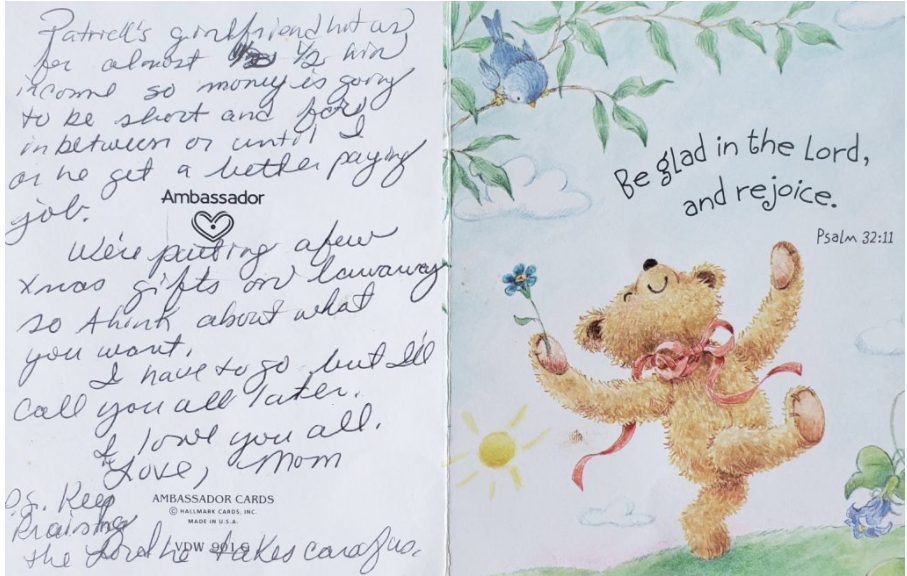 Patrick's girlfriend hit us
for almost 1/2 his
income so money is going
to be short and far
in between or until I
or he get a better paying
job.
Ambassador
We're putting a few
xmas gifts on lawaway
so think about what
you want.
I have to go but I'll
call you all later.
I love you all.
Love, Mom
P.S. Keep
Praising
the Lord he takes care of us.
AMBASSADOR CARDS
© HALLMARK CARDS, INC.
MADE IN U.S.A.
VDW 901-9
Be glad in the Lord,
and rejoice.
Psalm 32:11